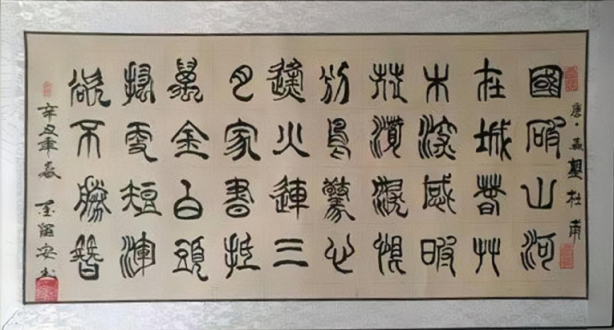 唐·春望 杜甫
國破山河
在城春艸
木深感時
花濺淚恨
別鳥驚心
烽火連三
月家書抵
萬金白頭
搔更短渾
欲不勝簪
辛丑年春